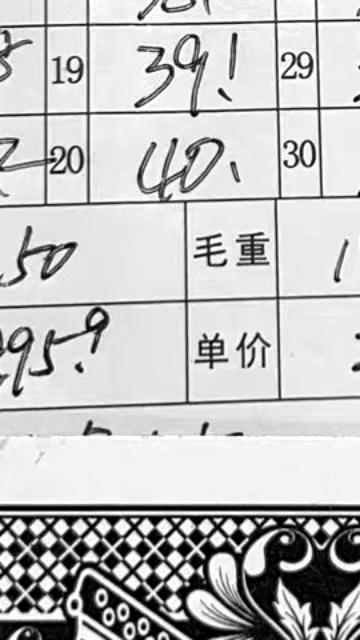 19 39.1 29
20 40. 30
50 毛重 1
95.9 单价